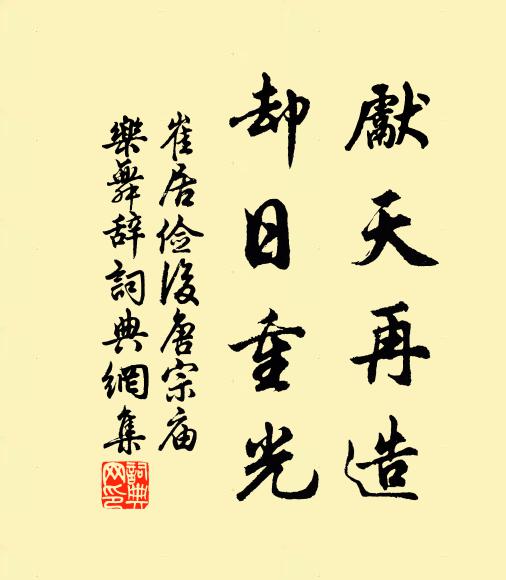 獻天再造
却日重光
崔居俭後唐宗庙
樂舞辞詞典網集
詞典網印